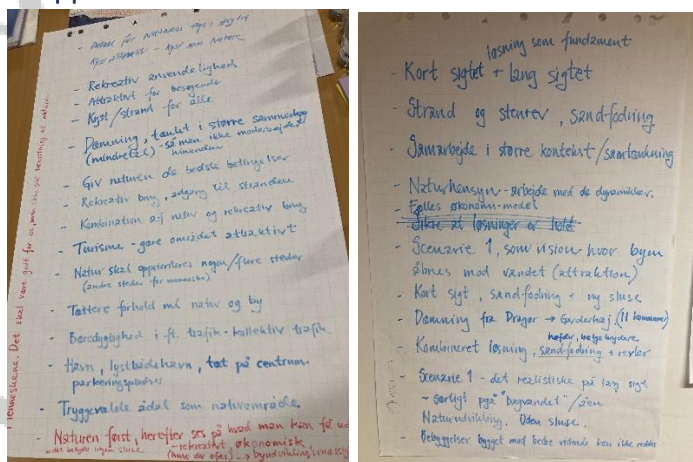 - Rekreativ anvendelighed
- Attraktivt for besøgende
- Kyst/strand for alle
- Dæmning, tænkt i større sammenhæng
(mindretal) - så man ikke modarbejder
hinanden
- Giv naturen de bedste betingelser
- Rekreativ brug, adgang til stranden
- Kombination af natur og rekreativ brug
- Turisme - gøre området attraktivt
- Natur skal opprioriteres nogen/flere steder
(andre steder for mennesker)
- Tættere forhold ml natur og by
- Bæredygtighed i fl. trafik - kollektiv trafik
- Havn, lystbådehavn, tæt på centrum
parkeringspladser
- Tryggevælde ådal som naturområde.
- Naturen først, herefter ses på hvad man kan få ud
- det betyder ingen sluse - rekreativt, økonomisk
→ byudvikling
menneskene. Det skal være godt for
løsning som fundament
- Kort sigtet + lang sigtet
- Strand og stenrev, sand-fodring
- Samarbejde i større kontekst/samtænkning
- Naturhensyn - arbejde med de dynamikker.
- Fælles økonomi-model
- Sikre at løsninger er
- Scenarie 1, som vision hvor byen
åbnes mod vandet (attraktion)
- Kort sigt, sand-fodring + ny sluse
- Dæmning fra Dragør → (11 kommuner)
høfder, bølgebrydere
- Kombineret løsning, sand-fodring + revler
- Scenarie 1 - det realistiske på lang sigt
- særligt pga "bagvandet"/åen
Naturudvikling. Uden sluse.
- Bebyggelser bygget med bedre vidende kan ikke reddes